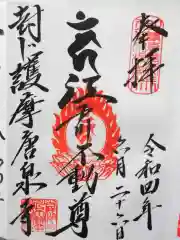 奉拝
令和四年
六月二十六日
大江戸不動尊
封じ護摩唐泉寺